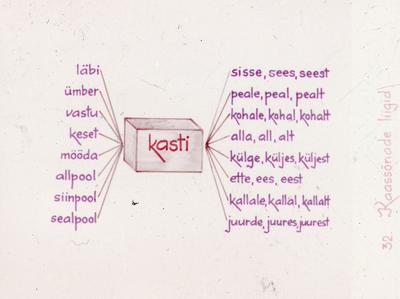 läbi
ümber
vastu
keset
mööda
allpool
siinpool
sealpool
kasti
sisse, sees, seest
peale, peal, pealt
kohale, kohal, kohalt
alla, all, alt
külge, küljes, küljest
ette, ees, eest
kallale, kallal, kallalt
juurde, juures, juurest
32. Kaassõnade liigid